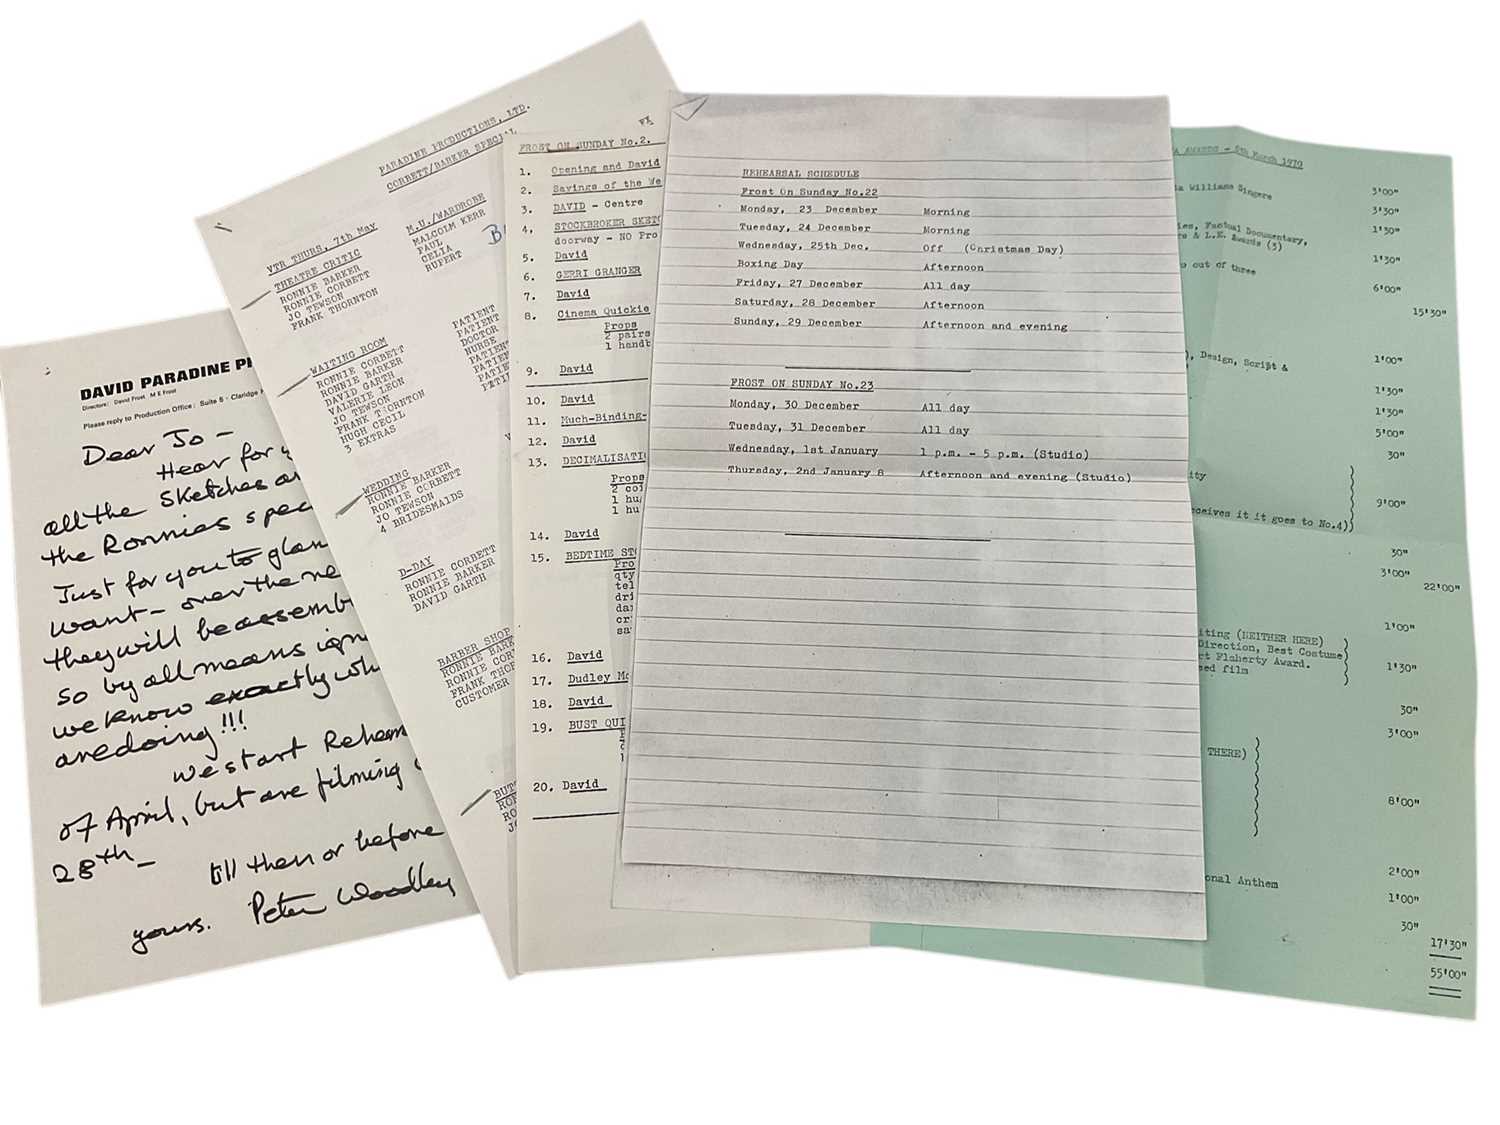 DAVID PARADINE
Directors: David Frost M E Frost
Please reply to Production Office: Suite 5 - Claridge
Dear Jo -
Hear for
all the Sketches
the Ronnies
Just for you to
want - over the
they will be
so by all means
we know exactly
are doing!!!
We start
of April, but are filming
28th -
till then or before
yours. Peter Woodley
PARADINE PRODUCTIONS, LTD.
CORBETT/BARKER SPECIAL
VTR THURS, 7th May
M.U./WARDROBE
THEATRE CRITIC
MALCOLM KERR
RONNIE BARKER
PAUL
RONNIE CORBETT
CELIA
JO TEWSON
RUPERT
FRANK THORNTON
WAITING ROOM
RONNIE CORBETT
PATIENT
RONNIE BARKER
PATIENT
DAVID GARTH
DOCTOR
VALERIE LEON
NURSE
JO TEWSON
FRANK THORNTON
HUGH CECIL
3 EXTRAS
WEDDING
RONNIE BARKER
RONNIE CORBETT
JO TEWSON
4 BRIDESMAIDS
D-DAY
RONNIE CORBETT
RONNIE BARKER
DAVID GARTH
BARBER SHOP
RONNIE
RONNIE
FRANK
CUSTOMER
FROST ON SUNDAY No.2.
1. Opening and David
2. Sayings of the
3. DAVID - Centre
4. STOCKBROKER
doorway - NO
5. David
6. GERRI GRANGER
7. David
8. Cinema Quickie
Props
2 pairs
1
9. David
10. David
11. Much-Binding-
12. David
13.
Props
2
1
1
14. David
15. BEDTIME
16. David
17. Dudley
18. David
19. BUST
20. David
REHEARSAL SCHEDULE
Frost On Sunday No.22
Monday, 23 December Morning
Tuesday, 24 December Morning
Wednesday, 25th Dec. Off (Christmas Day)
Boxing Day Afternoon
Friday, 27 December All day
Saturday, 28 December Afternoon
Sunday, 29 December Afternoon and evening
FROST ON SUNDAY No.23
Monday, 30 December All day
Tuesday, 31 December All day
Wednesday, 1st January 1 p.m. - 5 p.m. (Studio)
Thursday, 2nd January 8 Afternoon and evening (Studio)
AWARDS - 8th March 1970
Williams Singers 3'00"
3'30"
Factual Documentary, 1'30"
& L.E. Awards (3)
out of three 1'30"
6'00"
15'30"
Design, Script & 1'00"
1'30"
1'30"
5'00"
30"
9'00"
it goes to No.4)
30"
3'00"
22'00"
1'00"
(NEITHER HERE)
Direction, Best Costume
Flaherty Award. 1'30"
film
30"
3'00"
THERE)
8'00"
Anthem 2'00"
1'00"
30"
17'30"
55'00"